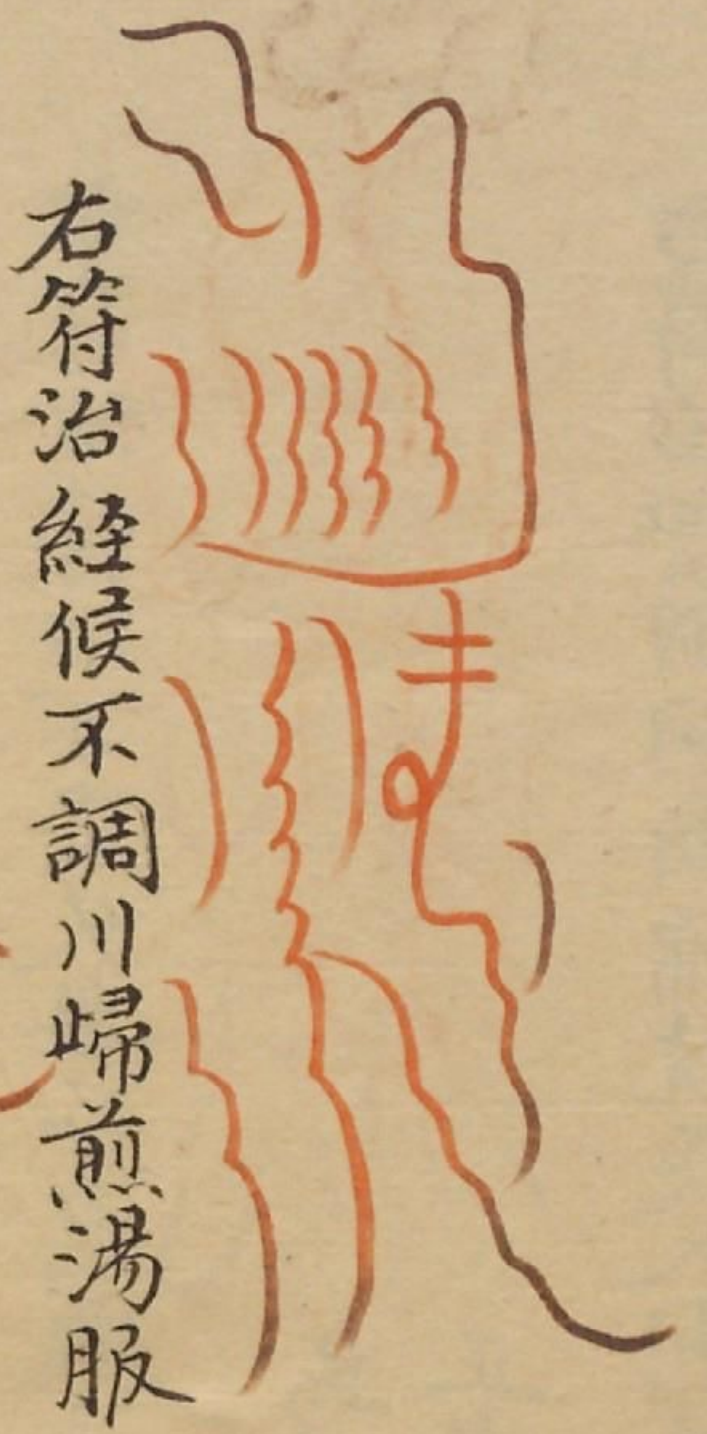 右符治経候不調川歸煎湯服